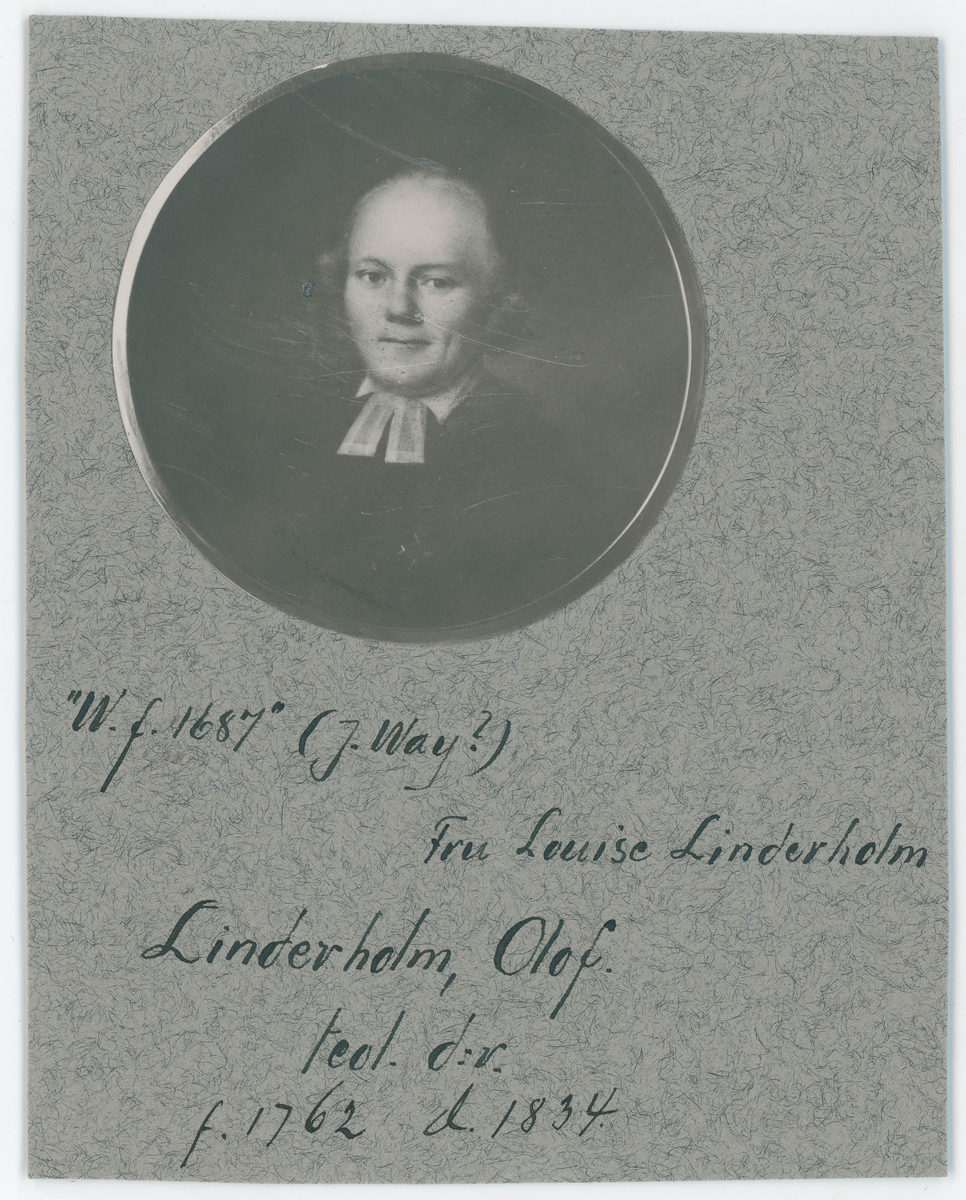 "W. f. 1687" (J. Way?)
Fru Louise Linderholm
Linderholm, Olof.
teol. d:r.
f. 1762 d. 1834.